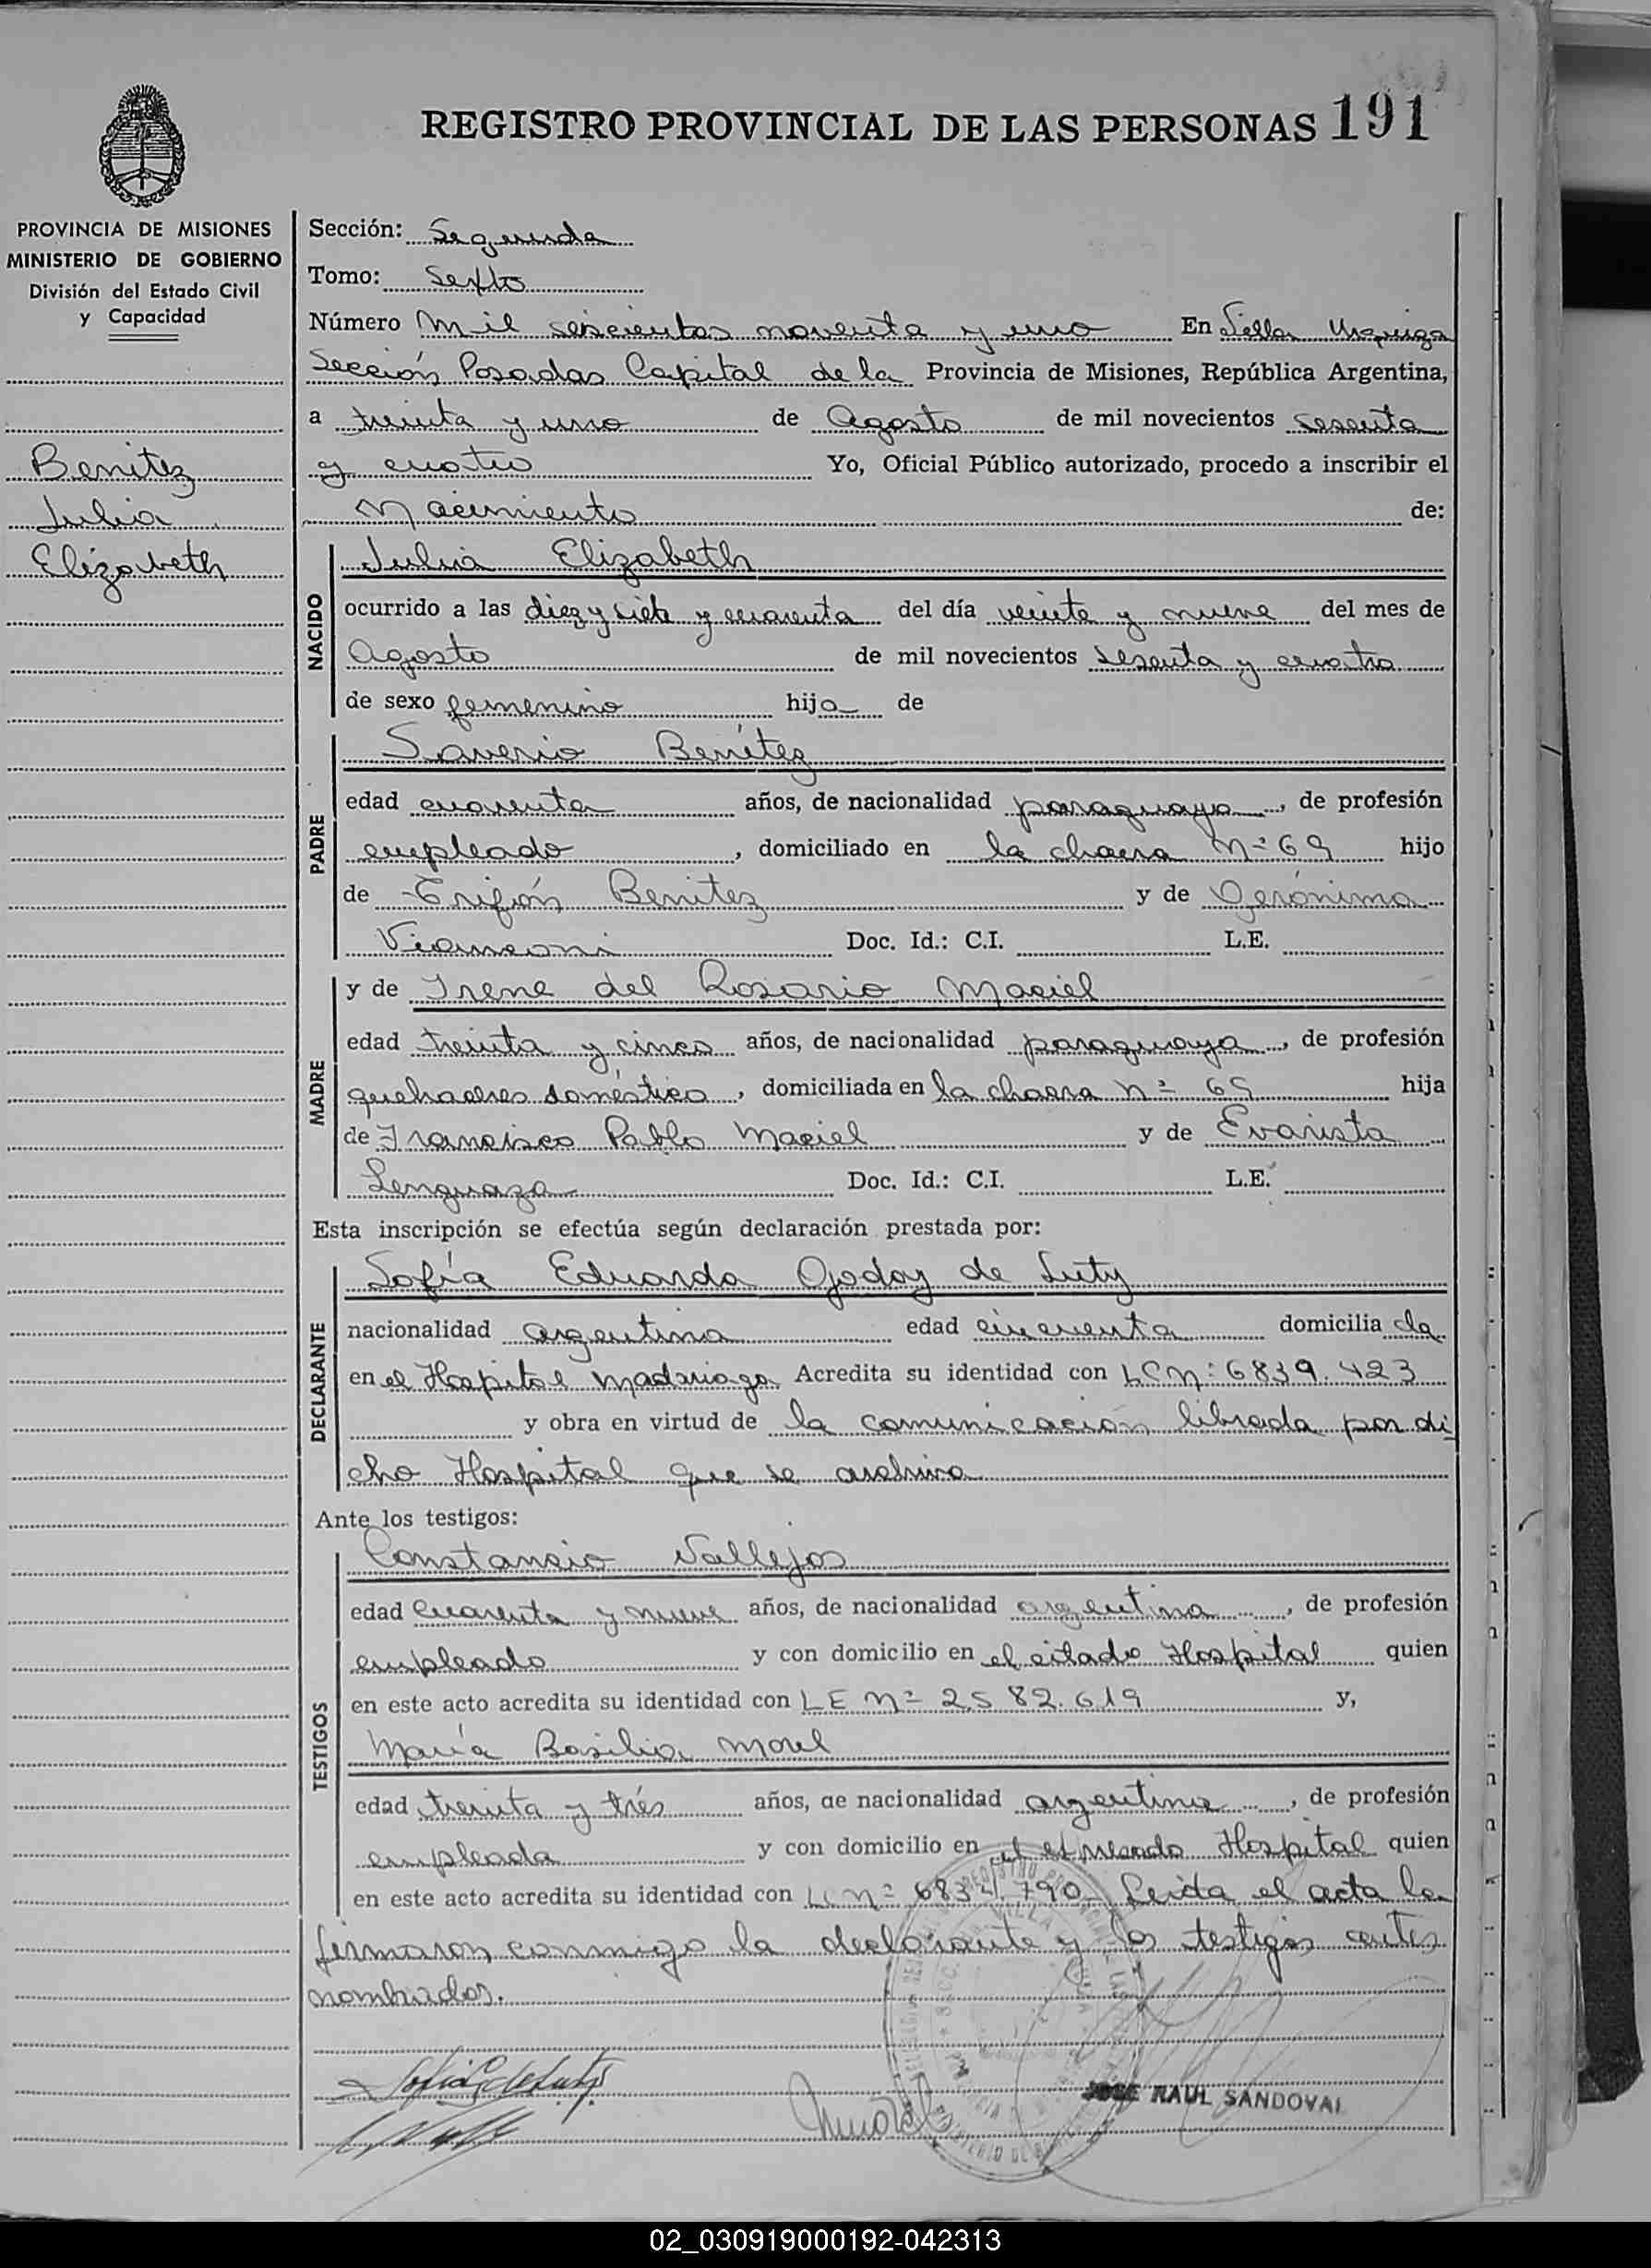 REGISTRO PROVINCIAL DE LAS PERSONAS 191
PROVINCIA DE MISIONES
MINISTERIO DE GOBIERNO
División del Estado Civil
y Capacidad
Benitez
Julia
Elizabeth
Sección: Segunda
Tomo: Sexto
Número Mil seiscientos noventa y uno En Villa Urquiza
Sección Posadas Capital de la Provincia de Misiones, República Argentina,
a treinta y uno de Agosto de mil novecientos sesenta
y cuatro Yo, Oficial Público autorizado, procedo a inscribir el
Nacimiento de:
NACIDO
Julia Elizabeth
ocurrido a las diez y siete y cuarenta del día veinte y nueve del mes de
Agosto de mil novecientos sesenta y cuatro
de sexo femenino hija de
PADRE
Saverio Benítez
edad cuarenta años, de nacionalidad paraguaya, de profesión
empleado, domiciliado en la chacra Nº 69 hijo
de Trifón Benitez y de Gerónima
Doc. Id.: C.I. L.E.
MADRE
y de Irene del Rosario Maciel
edad treinta y cinco años, de nacionalidad paraguaya, de profesión
quehaceres doméstico, domiciliada en la chacra nº 69 hija
de Francisco Pablo Maciel y de Evarista
Lenguaza Doc. Id.: C.I. L.E.
Esta inscripción se efectúa según declaración prestada por:
DECLARANTE
Sofía Eduarda Godoy de Luty
nacionalidad argentina edad cincuenta domicilia da
en el Hospital Madariaga Acredita su identidad con LC Nº 6839.423
y obra en virtud de la comunicación librada por di
cho Hospital que se archiva
Ante los testigos:
TESTIGOS
Constancio Vallejos
edad cuarenta y nueve años, de nacionalidad argentina, de profesión
empleado y con domicilio en el citado Hospital quien
en este acto acredita su identidad con LE Nº 2582.619 y,
María Basilia Morel
edad treinta y trés años, de nacionalidad argentina, de profesión
empleada y con domicilio en el Hospital quien
en este acto acredita su identidad con LC Nº 790 Leida el acta la
firmaron conmigo la declarante y los testigos antes
nombrados.
JOSE RAUL SANDOVAL
02_030919000192-042313